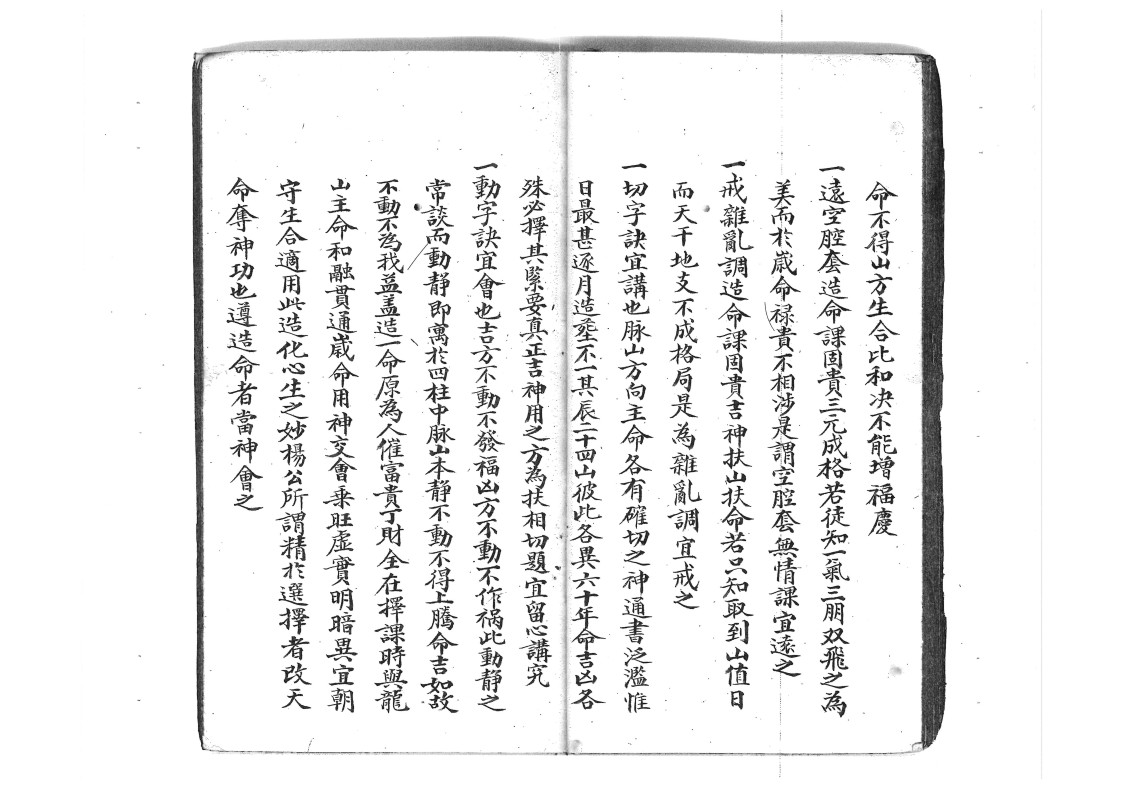 命不得山方生合比和决不能增福慶
一遠空腔套造命課固貴三元成格若徒知一氣三朋双飛之為
美而於歲命禄貴不相涉是謂空腔套無情課宜遠之
一戒雜亂調造命課固貴吉神扶山扶命若只知取到山值日
而天干地支不成格局是為雜亂調宜戒之
一切字訣宜講也脉山方向主命各有確切之神通書泛濫惟
日最甚逐月造塟不一其辰二十四山彼此各異六十年命吉凶各
殊必擇其緊要真正吉神用之方為扶相切題宜留心講究
一動字訣宜會也吉方不動不發福凶方不動不作禍此動静之
常談而動静即寓於四柱中脉山本静不動不得上騰命吉如故
不動不為我益盖造一命原為人催富貴丁財全在擇課時與龍
山主命和融貫通歲命用神交會乗旺虛實明暗異宜朝
守生合適用此造化心生之妙楊公所謂精於選擇者改天
命奪神功也遵造命者當神會之